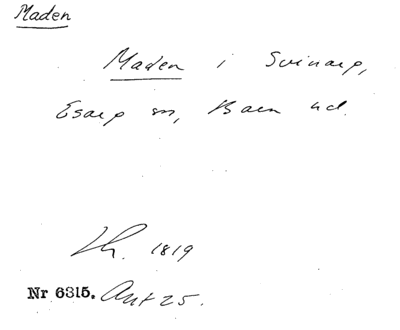 Maden
Maden i Svinarp,
Esarp sn, Bara hd.
Lh. 1819
Nr 6315. Ant 25.